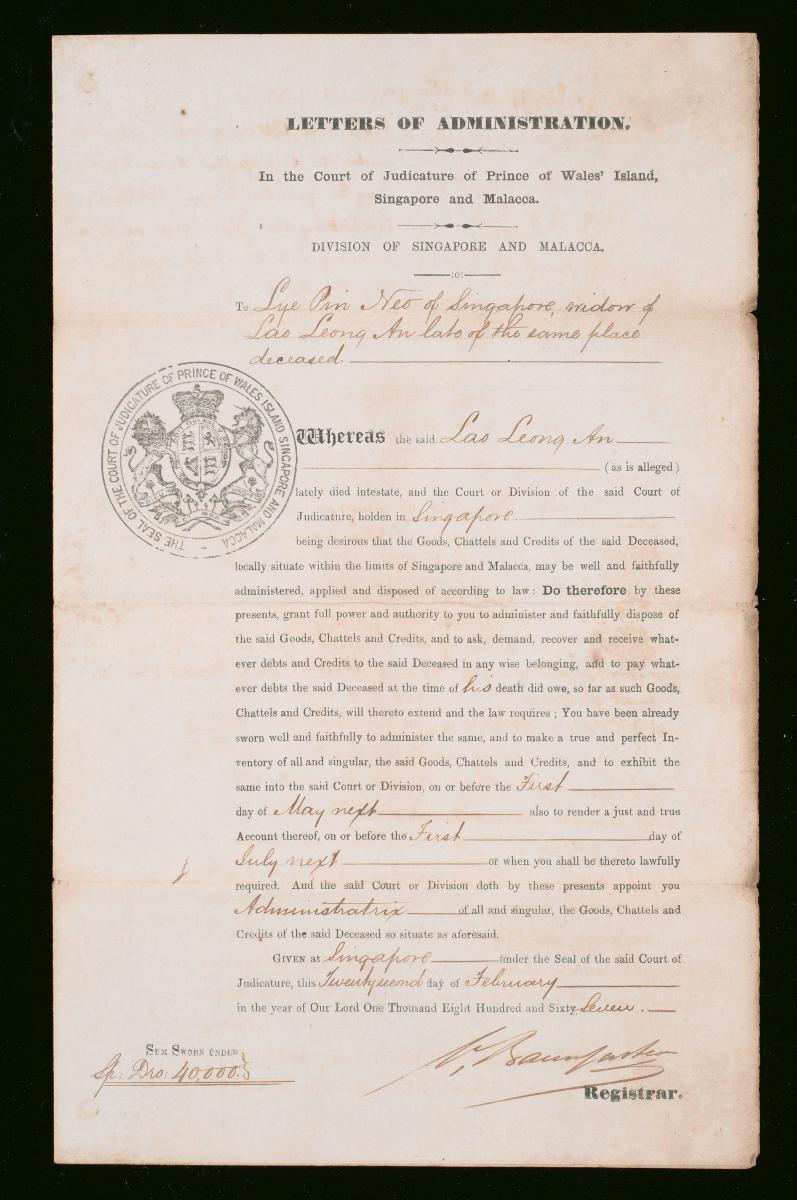 LETTERS OF ADMINISTRATION.
In the Court of Judicature of Prince of Wales' Island,
Singapore and Malacca.
DIVISION OF SINGAPORE AND MALACCA.
:o:
To Lye Pin Neo of Singapore, widow of
Lao Leong An late of the same place
deceased.
THE SEAL OF THE COURT OF JUDICATURE OF PRINCE OF WALES ISLAND SINGAPORE AND MALACCA
Whereas the said Lao Leong An
(as is alleged)
lately died intestate, and the Court or Division of the said Court of
Judicature, holden in Singapore
being desirous that the Goods, Chattels and Credits of the said Deceased,
locally situate within the limits of Singapore and Malacca, may be well and faithfully
administered, applied and disposed of according to law: Do therefore by these
presents, grant full power and authority to you to administer and faithfully dispose of
the said Goods, Chattels and Credits, and to ask, demand, recover and receive what-
ever debts and Credits to the said Deceased in any wise belonging, and to pay what-
ever debts the said Deceased at the time of his death did owe, so far as such Goods,
Chattels and Credits, will thereto extend and the law requires; You have been already
sworn well and faithfully to administer the same, and to make a true and perfect In-
ventory of all and singular, the said Goods, Chattels and Credits, and to exhibit the
same into the said Court or Division, on or before the First
day of May next also to render a just and true
Account thereof, on or before the First day of
July next or when you shall be thereto lawfully
required. And the said Court or Division doth by these presents appoint you
Administratrix of all and singular, the Goods, Chattels and
Credits of the said Deceased so situate as aforesaid.
GIVEN at Singapore under the Seal of the said Court of
Judicature, this Twenty second day of February
in the year of Our Lord One Thousand Eight Hundred and Sixty Seven.
SUM SWORN UNDER
Sp: Drs: 40,000.
Registrar.